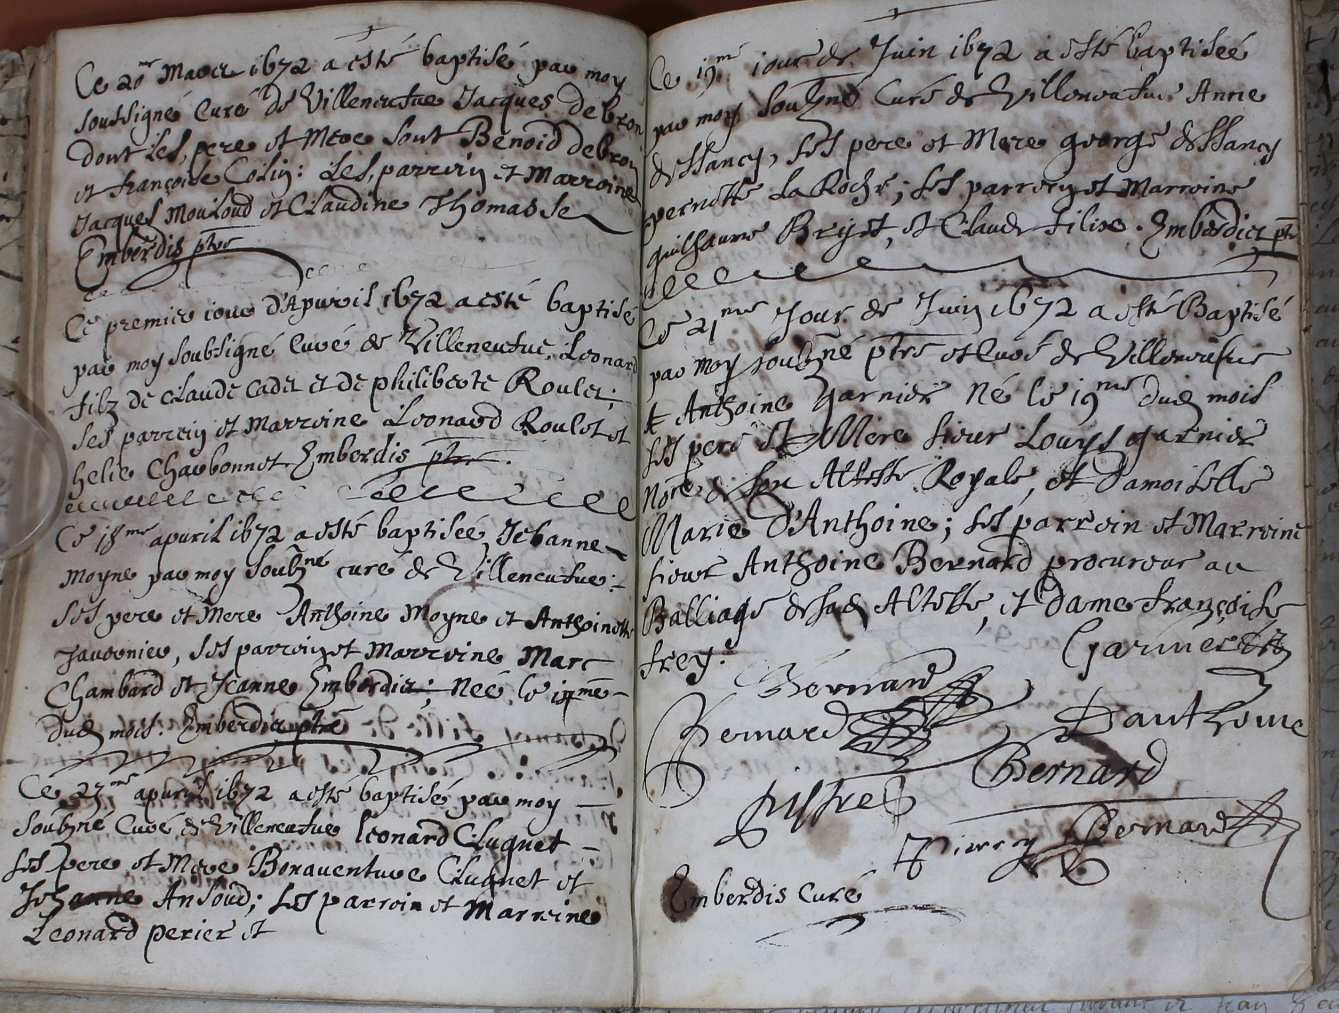 Ce 20me Marci 1672 a esté baptisé par moy
soubsigné Curé de Villeneufve Jacques de bron
dont les, pere et Mere sont Benoid de bron
et françoise Coliy: Les, parreiy et Marroine
Jacques Mouloud et Claudine Thomasse
Emberdis ptre
Ce premier iour d'Apvril 1672 a esté baptisé
par moy soubsigné Curé de Villeneufve, Leonard
filz de Claude Cadet et de philiberte Roulet;
ses parreiy et Marreine Leonard Roulet et
helie Charbonnet Emberdis ptre
Ce 18me apuril 1672 a esté baptiséé Jehanne
Moyne par moy soubzné curé de Villeneufve:
Ses pere et Mere Anthoine Moyne et Anthoinette
, ses parreiy et Marreine Marc
Chambard et Jeanne Emberdis; Néé le me
dud mois. Emberdis ptre
Ce 27me apuril 1672 a esté baptisé par moy
soubzné Curé de Villeneufve Leonard Cluquet
Ses pere et Mere Bonaventure Cluquet et
Jehanne Ansoud; Ses parroin et Marreine
Leonard perier et
Ce 19me iour de Juin 1672 a esté baptiséé
par moy soubzné Curé de Villeneufve Anne
de , ses pere et Mere george de
pernette La Roche; ses parreiy et Marroine
guilhaume , et Claude filise. Emberdis ptre
Ce 21me Jour de Juiy 1672 a esté Baptisé
par moy soubzné ptre et Curé de Villeneufve
Anthoine Garnier Né le 19me dud mois
ses pere et Mere sieur Louys Garnier
Nore de son Altesse Royale, et Damoiselle
Marie D'Anthoine; ses parroin et Marroine
sieur Anthoine Bernard procureur au
Balliage de sad Altesse, et Dame françoise
frey.
Garnier
Bernard
Bernard
Danthoine
Bernard
Pierroy Bernard
Emberdis Curé